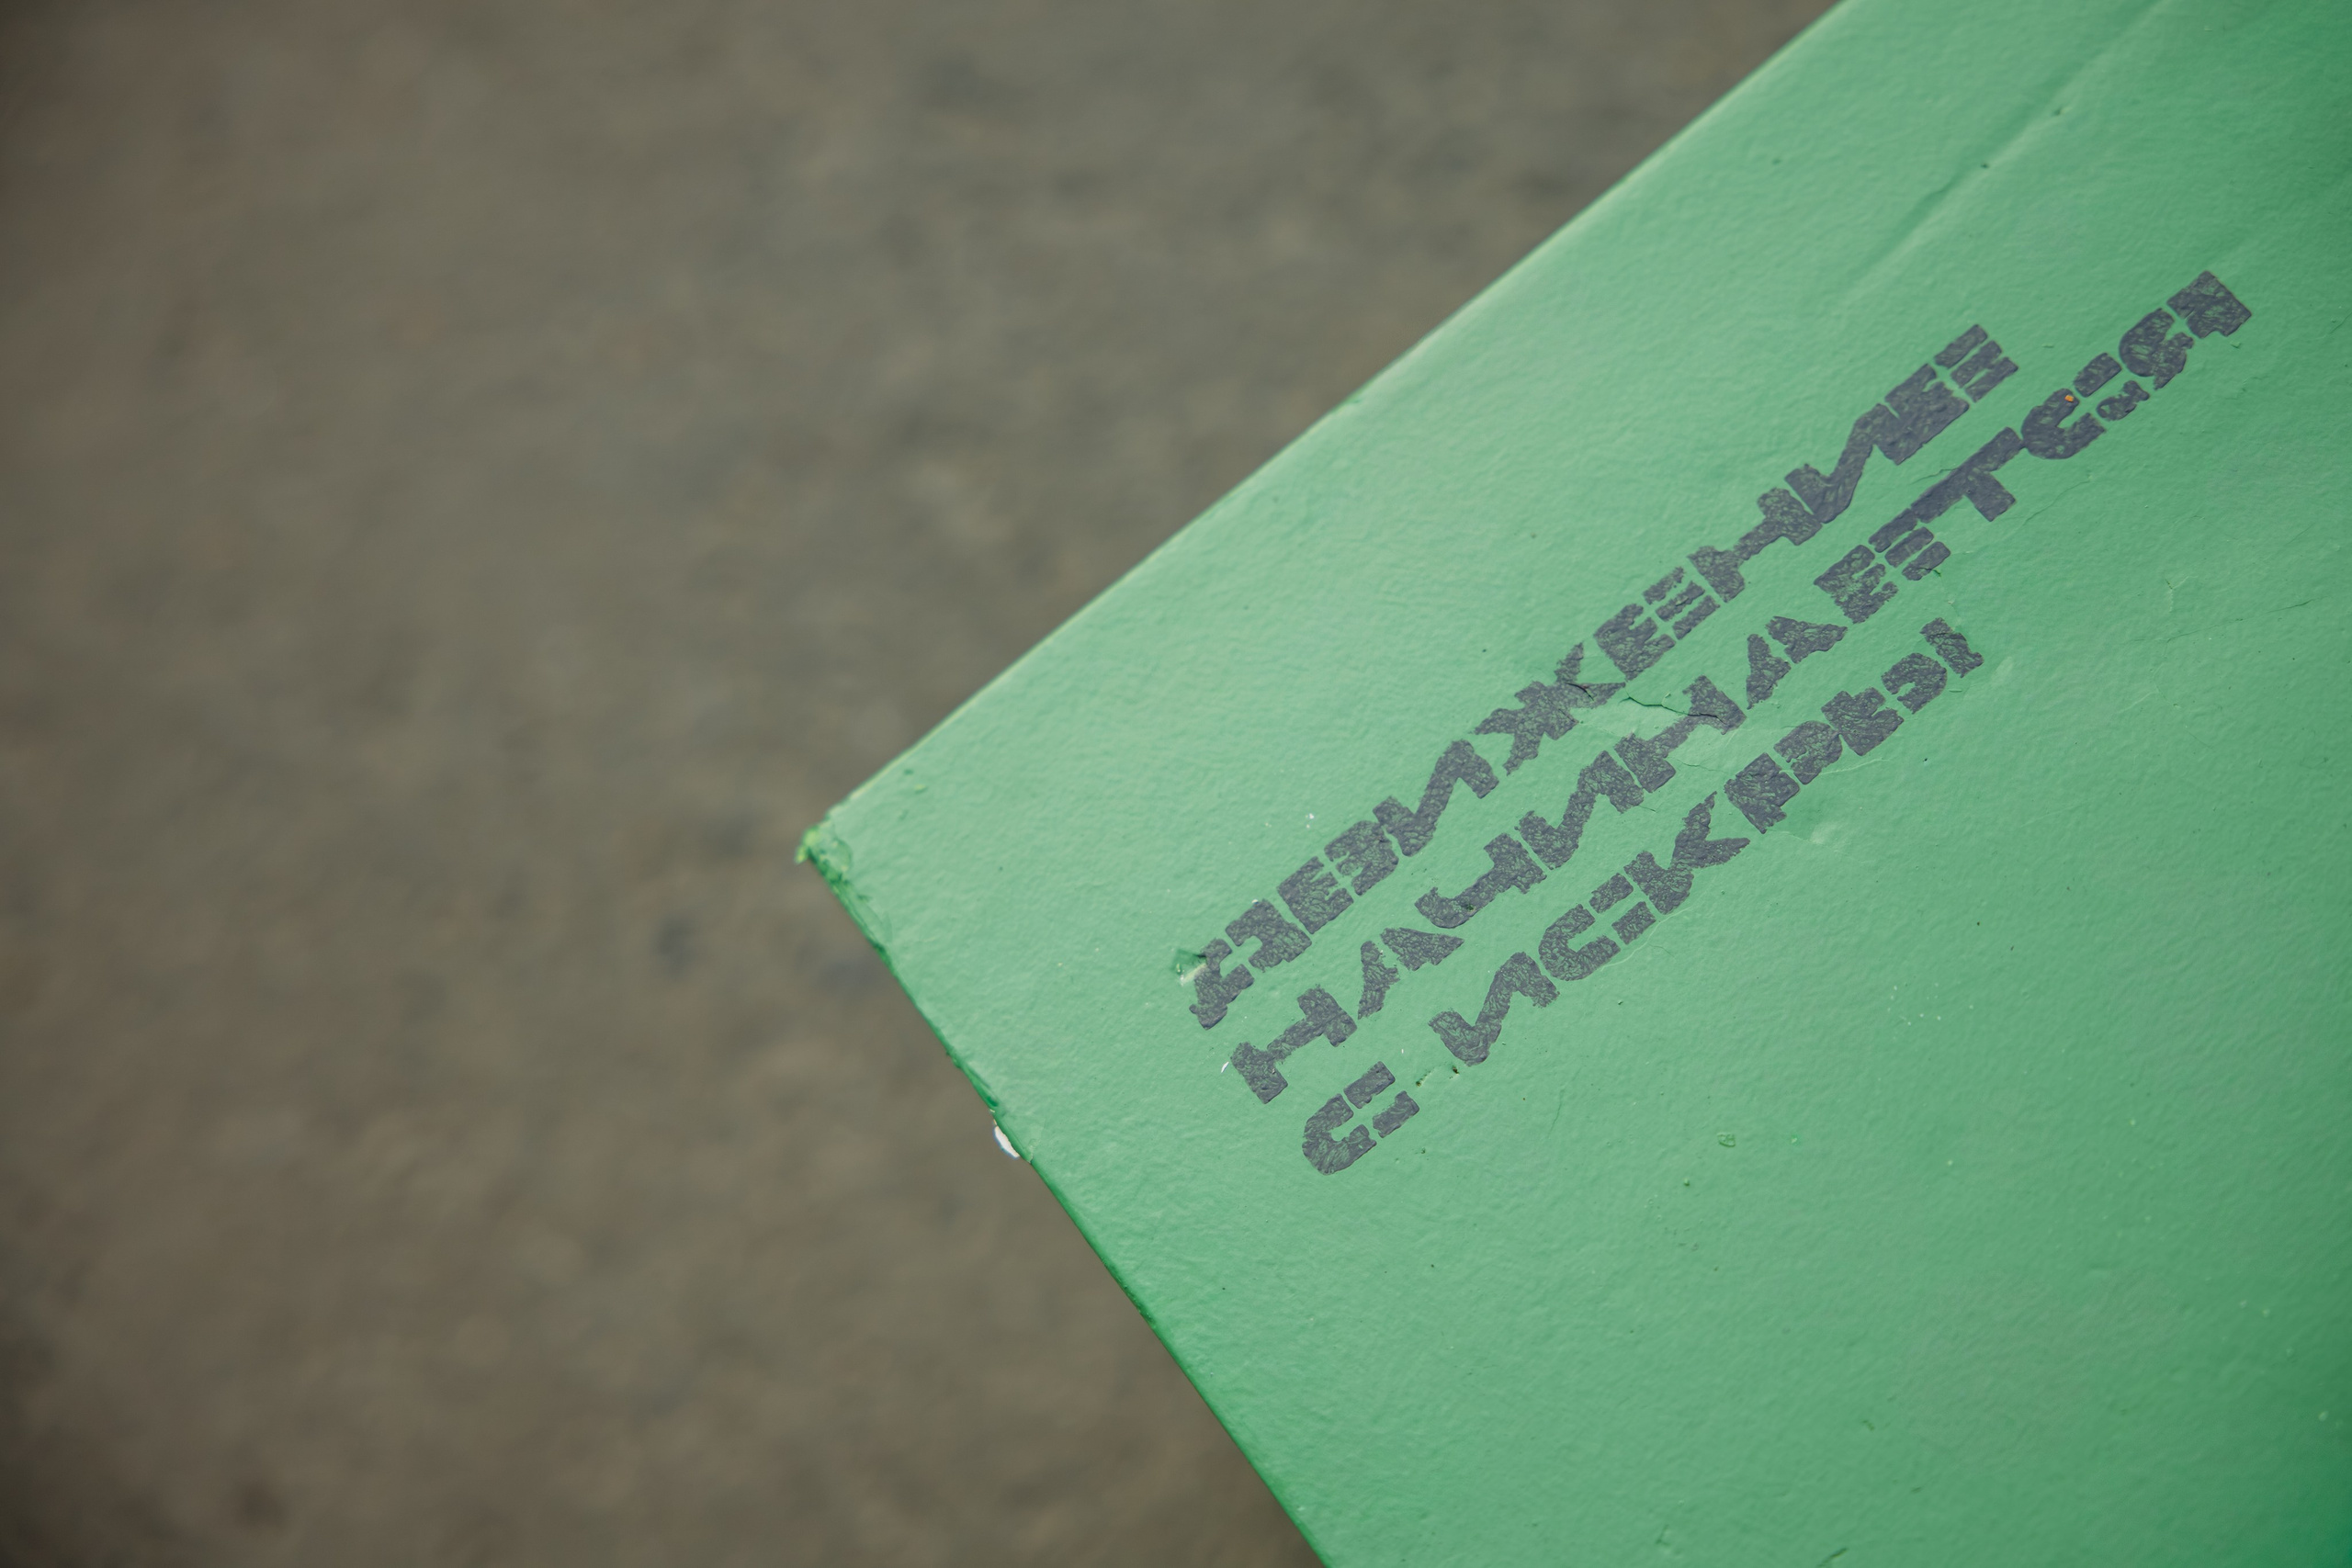 ДВИЖЕНИЕ
НАЧИНАЕТСЯ
С ИСКРЫ